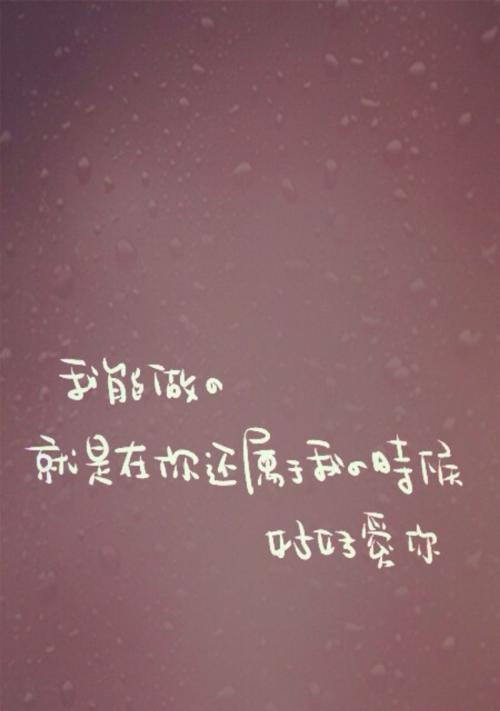 我能做の
就是在你还属于我の時候
好好愛你